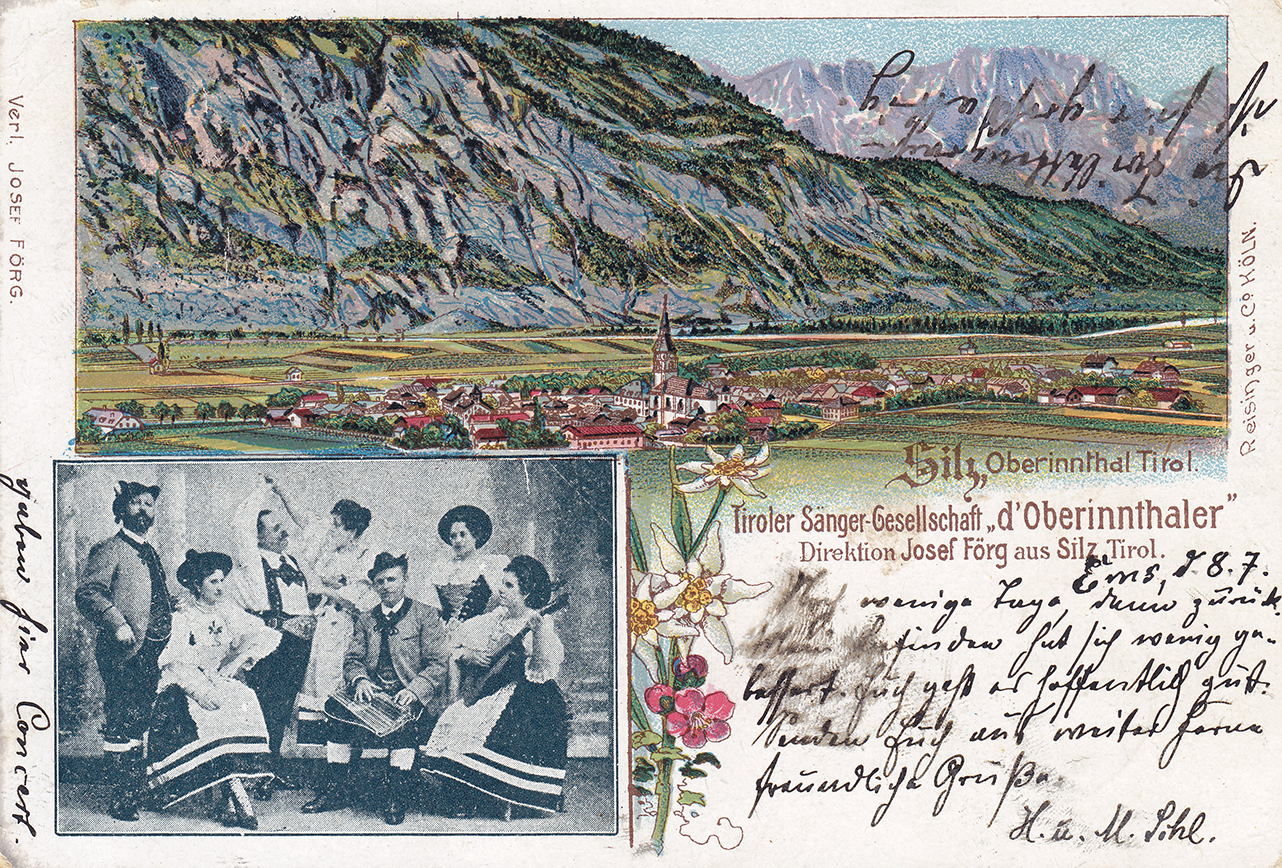 Verl. JOSEF FÖRG.
Reisinger u. Co KÖLN.
Silz, Oberinnthal Tirol.
Tiroler Sänger-Gesellschaft „d'Oberinnthaler"
Direktion Josef Förg aus Silz, Tirol.
Ems, d. 8.7.
wenige Tage, dann zurück.
finden hat sich wenig ge-
bessert. Euch geht es hoffentlich gut.
Senden Euch aus weiter Ferne
freundliche Grüße.
H. u. M. Sihl.
gaben hier Concert.